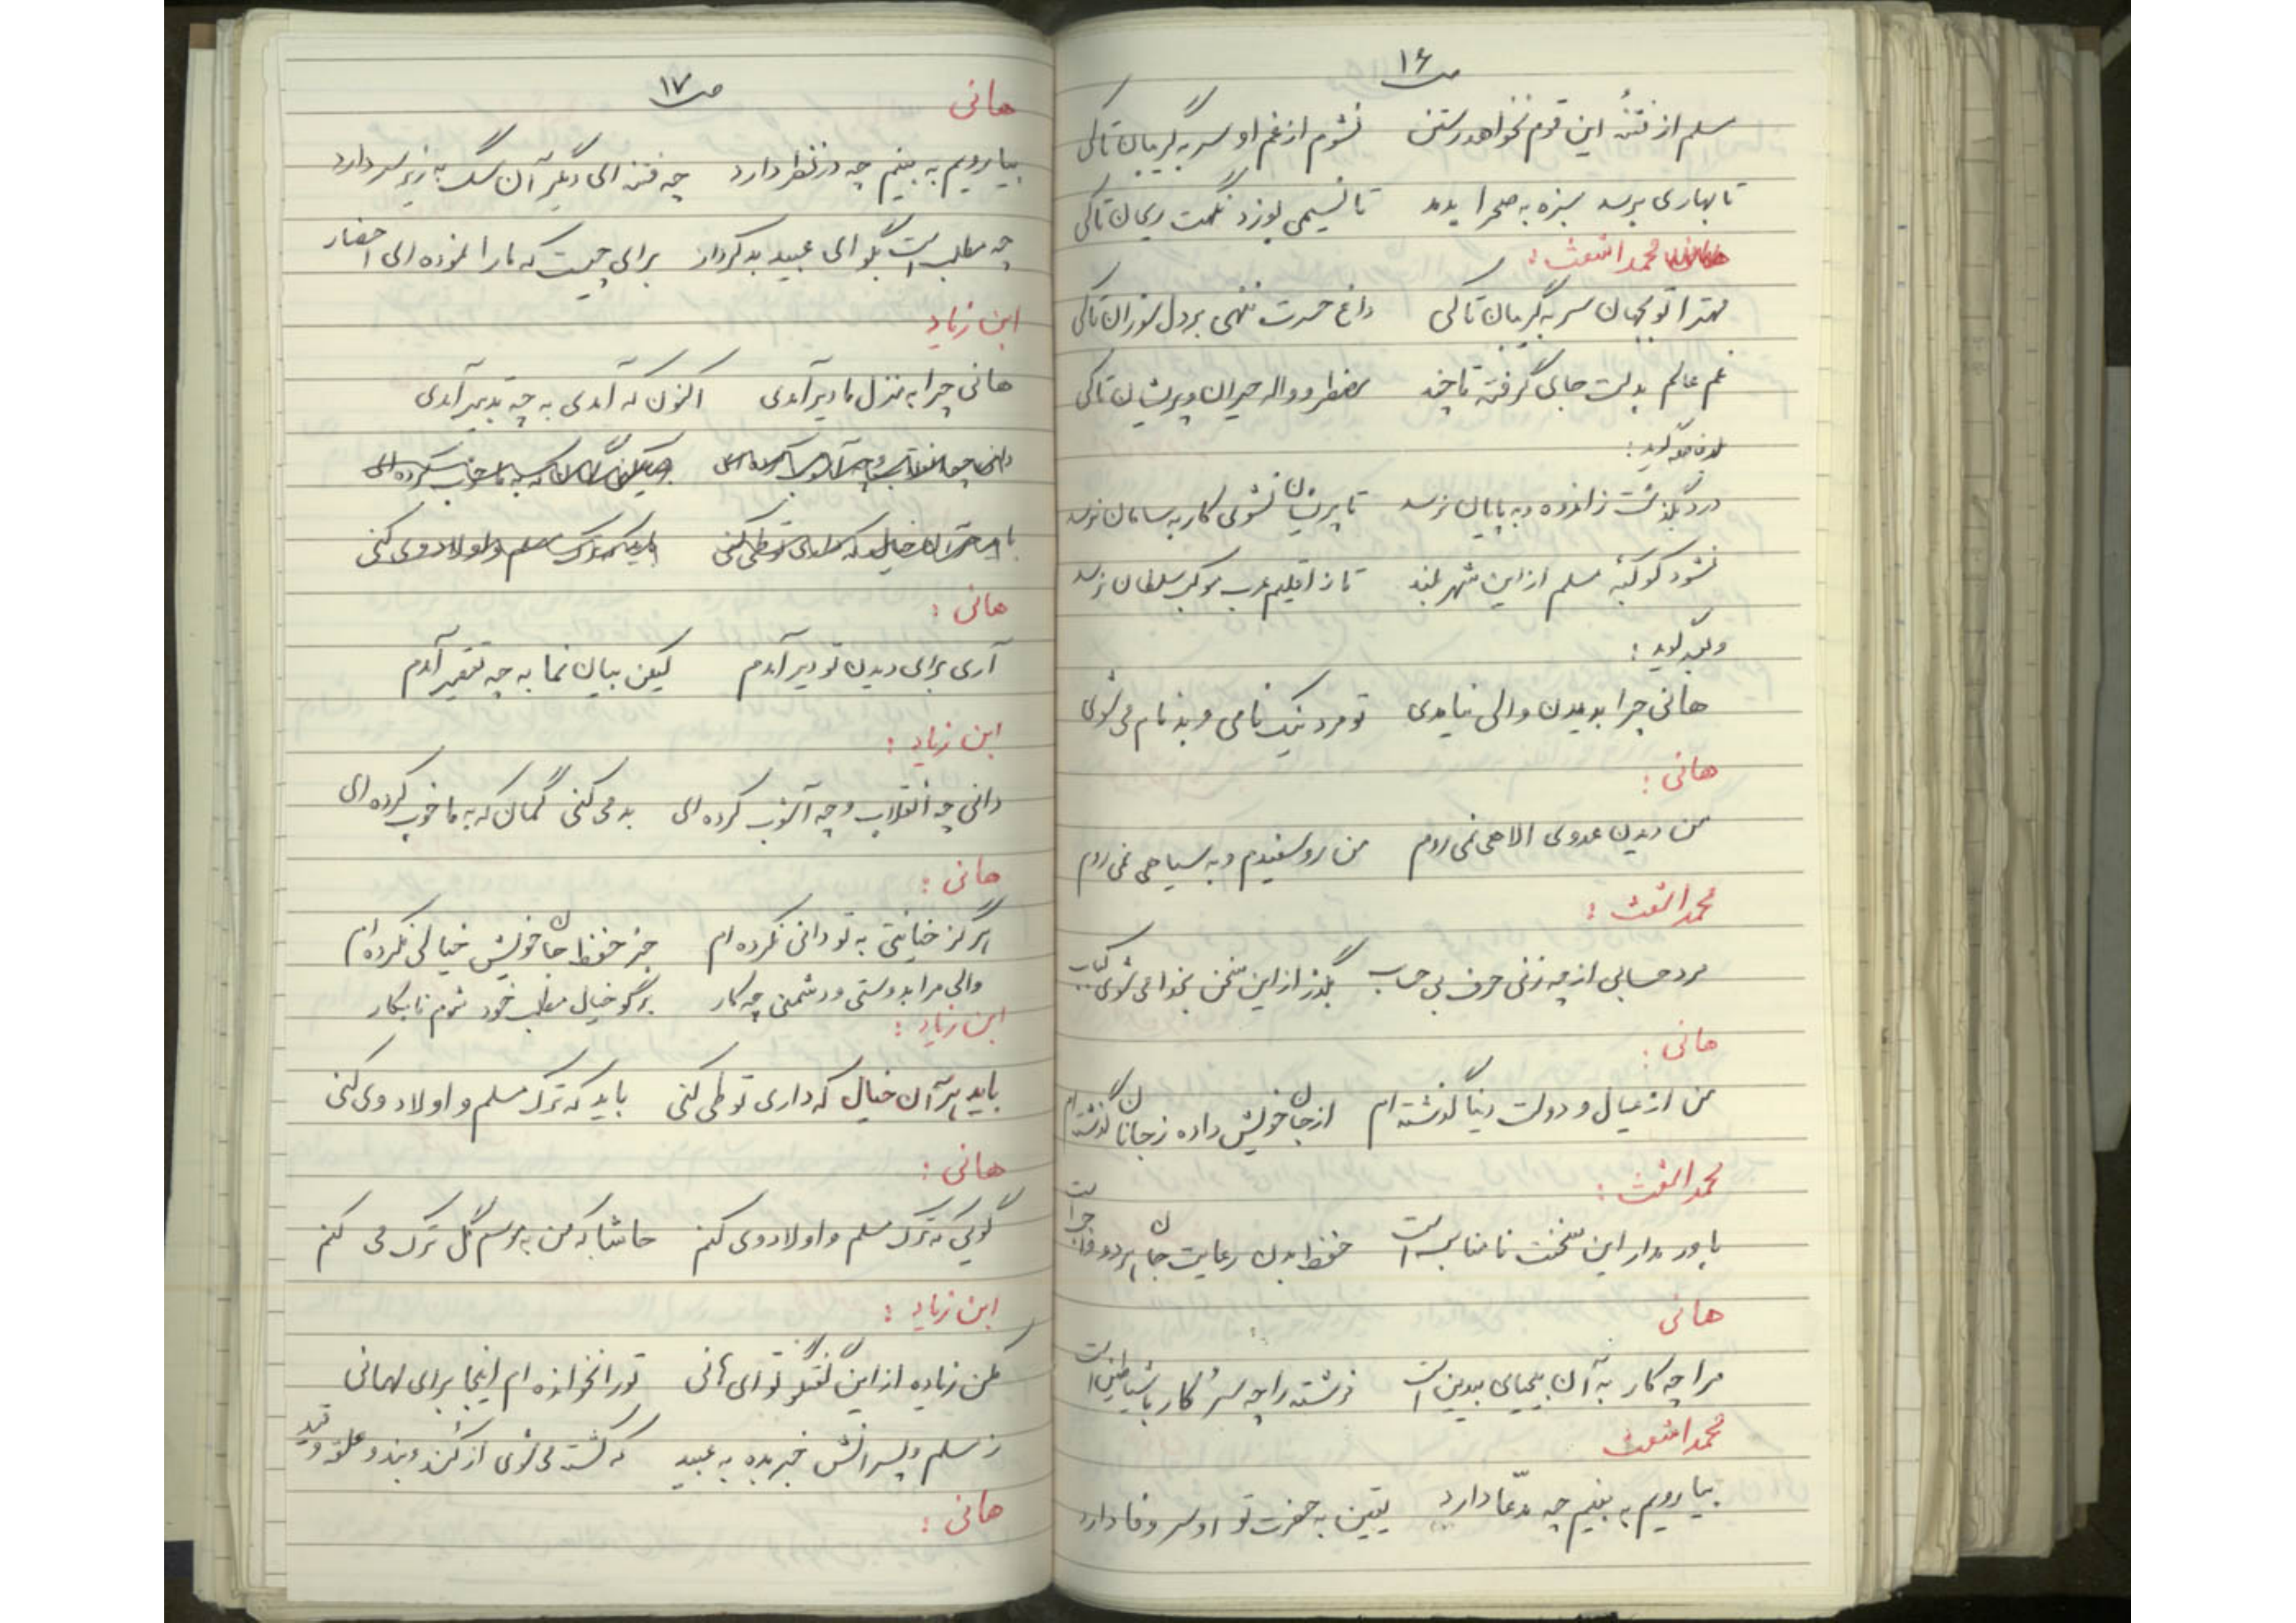 ص ۱۶
مسلم از فتنهٔ این قوم نخواهد رستن نشوم از غم او سر به گریبان تا کی
تا بهاری برسد سبزه به صحرا بدمد تا نسیمی بوزد نگهت ریحان تا کی
محمد اشعث :
مهترا تو بجهان سر به گریبان تا کی داغ حسرت بنهی بر دل سوزان تا کی
غم عالم بدلت جای گرفته تا چند مضطر و واله حیران و پریشان تا کی
درد بگذشت ز اندوه و به پایان نرسد تا پریشان نشوی کار به سامان نرسد
نشود کوکبهٔ مسلم از این شهر بلند تا ز اقلیم عرب موکب سلطان نرسد
و بعد گوید :
هانی چرا بدیدن والی نیامدی تو مرد نیک نامی و بدنام می شوی
هانی :
من دیدن عدوی الاهی نمی روم من رو سفیدم و به سیاهی نمی روم
محمد اشعث :
مرد حسابی از چه زنی حرف بی حساب بگذر از این سخن بخدا می شوی کباب
هانی :
من از عیال و دولت دنیا گذشته ام از جان خویش داده ز جانان گذشته ام
محمد اشعث :
باور مدار این سخنت نامناسب است حفظ بدن رعایت جان هر دو واجب است
هانی
مرا چه کار به آن بیحیای بیدین است فرشته را چه سر و کار با شیاطین است
محمد اشعث
بیا رویم به بینیم چه مدّعا دارد یقین به حضرت تو او سر وفا دارد
ص ۱۷
هانی
بیا رویم به بینم چه در نظر دارد چه فتنه ای دیگر آن سگ به زیر سر دارد
چه مطلب است بگو ای عبید بد کردار برای چیست که ما را نموده ای احضار
ابن زیاد
هانی چرا به منزل ما دیر آمدی اکنون که آمدی به چه تدبیر آمدی
دانی چه انقلاب و چه آشوب کرده ای
باید که ترک مسلم و اولاد وی کنی
هانی :
آری برای دیدن تو دیر آمدم لیکن بیان نما به چه تقصیر آمدم
ابن زیاد :
دانی چه انقلاب و چه آشوب کرده ای بد می کنی گمان که به ما خوب کرده ای
هانی :
هرگز خیانتی به تو دانی نکرده ام جز حفظ جان خویش خیالی نکرده ام
والی مرا بدوستی و دشمنی چه کار برگو خیال مطلب خود شوم نابکار
ابن زیاد :
باید هر آن خیال که داری تو طی کنی باید که ترک مسلم و اولاد وی کنی
هانی :
گویی که ترک مسلم و اولاد وی کنم حاشا که من به موسم گل ترک می کنم
ابن زیاد :
مکن زیاده از این گفتگو تو ای هانی تو را نخوانده ام اینجا برای مهمانی
ز مسلم و پسرانش خبر بده به عبید که کشته می شوی از کند و بند و قید
هانی :